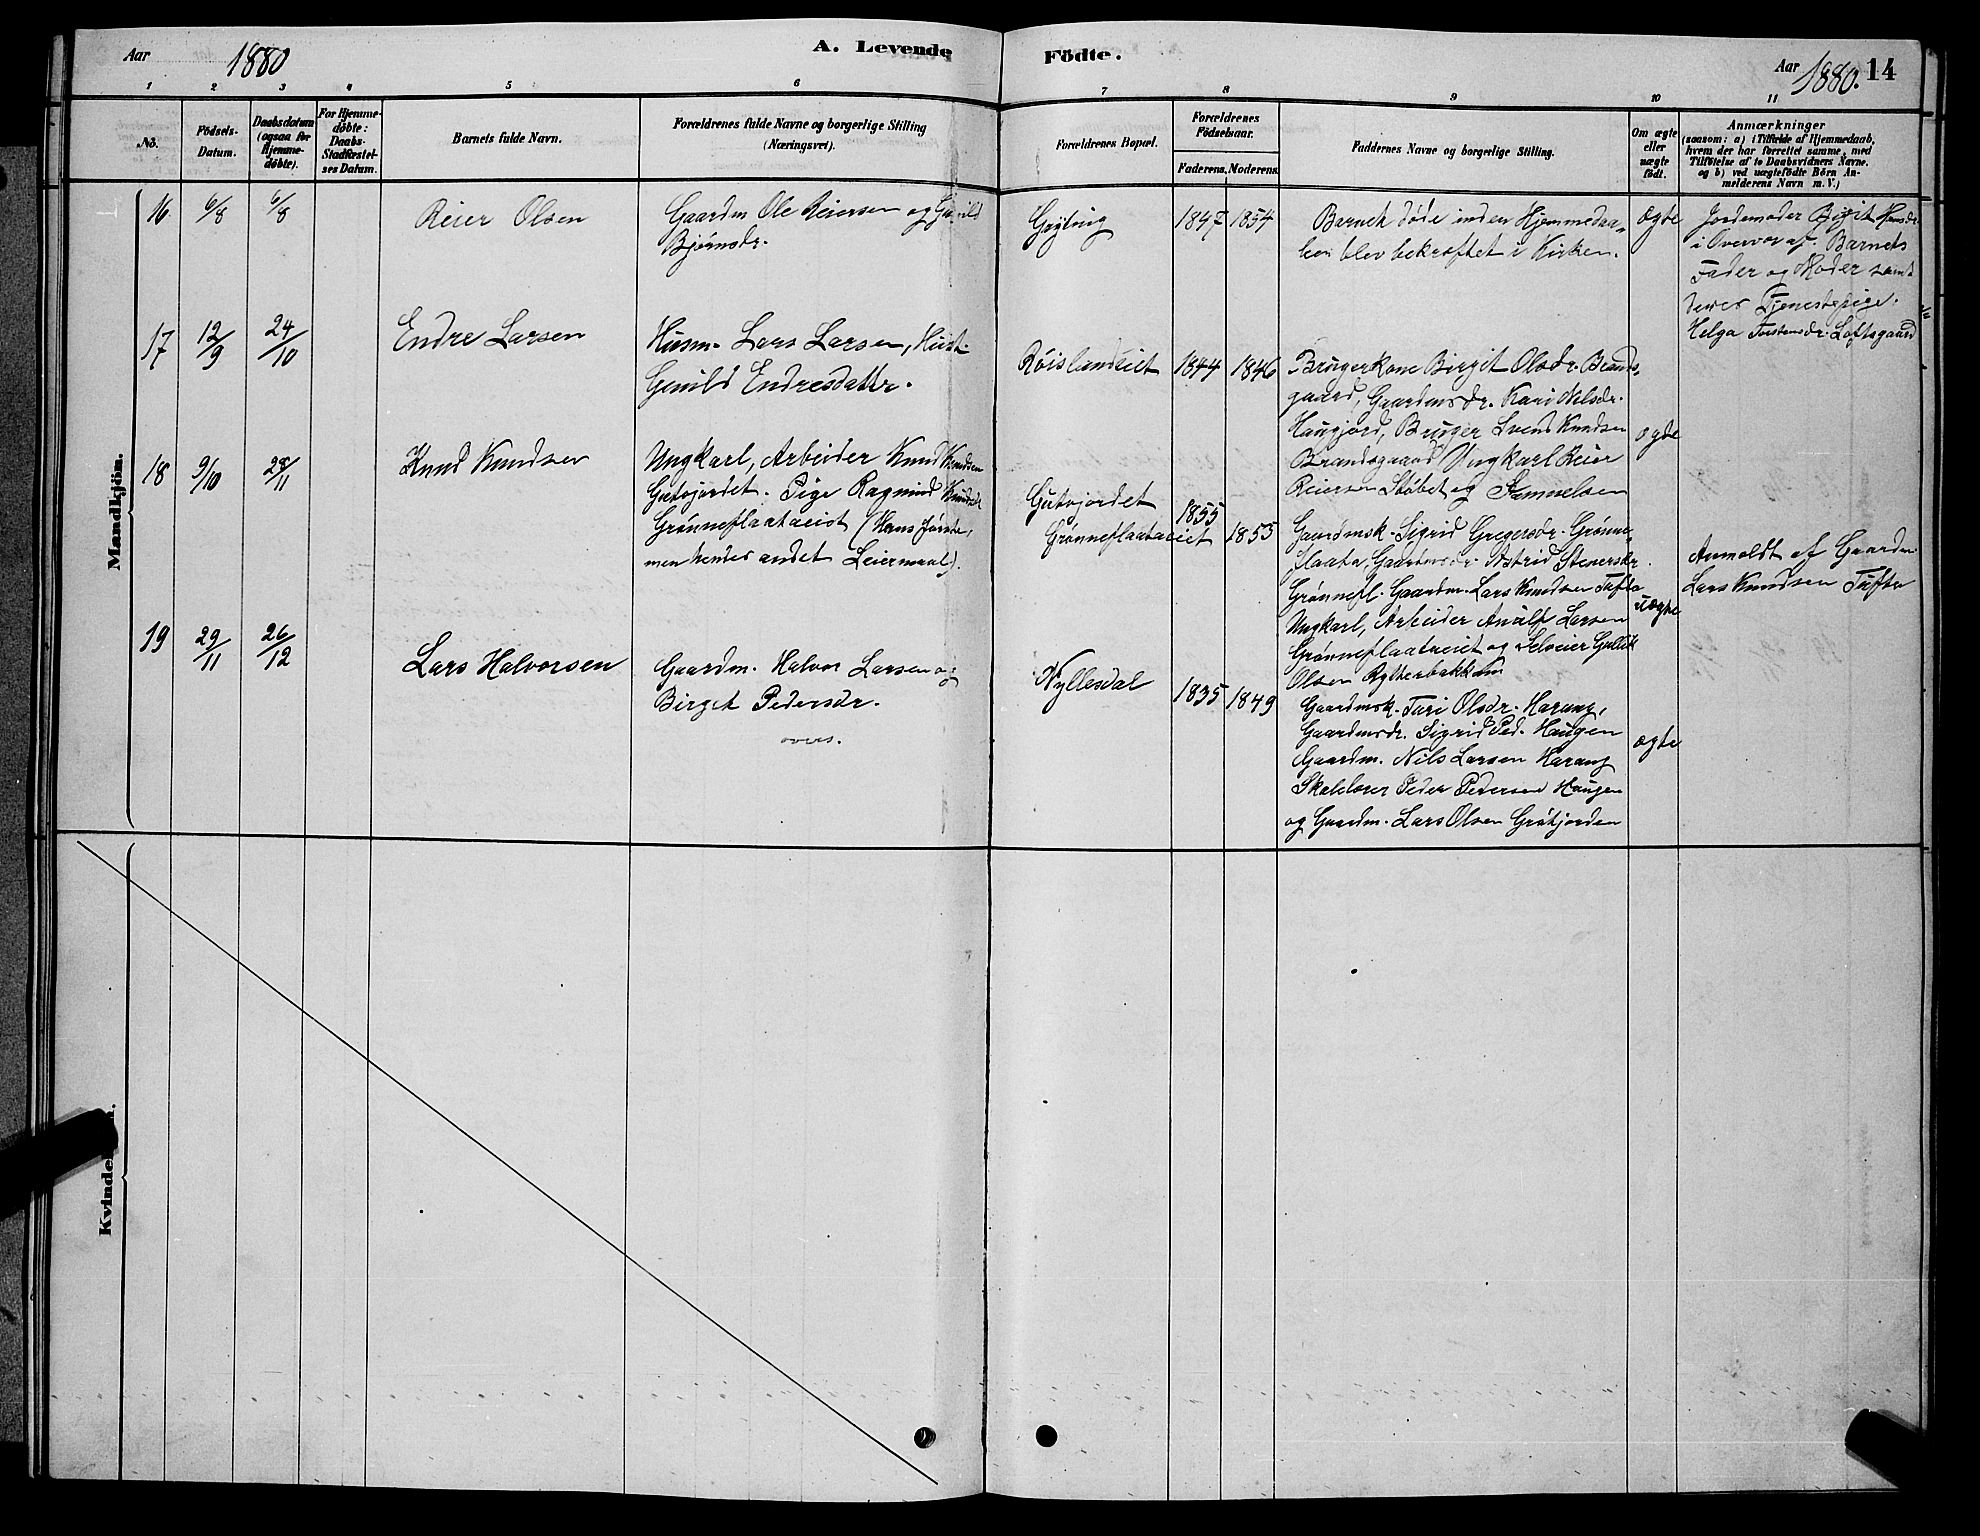 Aar 1880
A. Levende
Födte.
Aar 1880. 14
1 2 3 4 5 6 7 8 9 10 11
No.
Födsels-
Datum.
Daabsdatum
(ogsaa for
Hjemme-
döbte).
For Hjemme-
døbte:
Daabs-
Stadfæstel-
ses Datum.
Barnets fulde Navn.
Forældrenes fulde Navne og borgerlige Stilling
(Næringsvei).
Forældrenes Bopæl.
Forældrenes
Födselsaar.
Faderens. Moderens.
Faddernes Navne og borgerlige Stilling.
Om ægte
eller
uægte
födt.
Anmærkninger
(saasom: a) i Tilfælde af Hjemmedaab,
hvem der har forrettet samme, med
Tilföielse af to Daabsvidners Navne,
og b) ved uægtefödte Börn An-
melderens Navn m. V.)
Mandkjön.
16 6/8 6/8
Reier Olsen
Gaardm Ole Reiersen og Gunild
Bjørnsdr.
1847 1854
Barnet døde inden Hjemmedaa-
ben blev bekræftet i Kirken.
Ægte
Jordemoder Birgit Hansdr
i Overvær af Barnets
Fader og Moder samt
deres Tjenestepige
Helga Torstensdr. Loftsgaard
17 12/9 24/10
Endre Larsen
Husm. Lars Larsen, Hust.
Gunild Endresdatter.
Röislandseiet 1844 1846
Brugerkone Birgit Olsdr. Brands-
gaard, Gaardmsdr. Kari Nilsdr.
Haugjord, Bruger Svend Knudsen
Brandsgaard Ungkarl Reier
Reiersen Støbet og Samuelsen
ægte
18 9/10 28/11
Knud Knudsen
Ungkarl, Arbeider Knud Knudsen
Gutujordet. Pige Ragnild Knudsdr
Grønneflaataeiet (Hans første,
men hendes andet Leiermaal).
Gutujordet
Grønneflaataeiet 1855 1855
Gaardmsk. Sigrid Gregersdr. Grønne-
flaata, Gaardmsdr. Astrid Stenersdr.
Grønnefl. Gaardm. Lars Knudsen Tufte
Ungkarl, Arbeider Larsen
Grønneflaataeiet og Selveier Gullik
Olsen Rytterbakken
uægte
Anmeldt af Gaardm.
Lars Knudsen Tufte
19 29/11 26/12
Lars Halvorsen
Gaardm. Halvor Larsen og
Birget Pedersdr.
overs.
Nyllesdal 1835 1849
Gaardmsk. Turi Olsdr. Harang,
Gaardmsdr. Sigrid Ped. Haugen
Gaardm. Nils Larsen Harang
Skolelærer Peder Pedersen Haugen
og Gaardm. Lars Olsen Gröfjorden
ægte